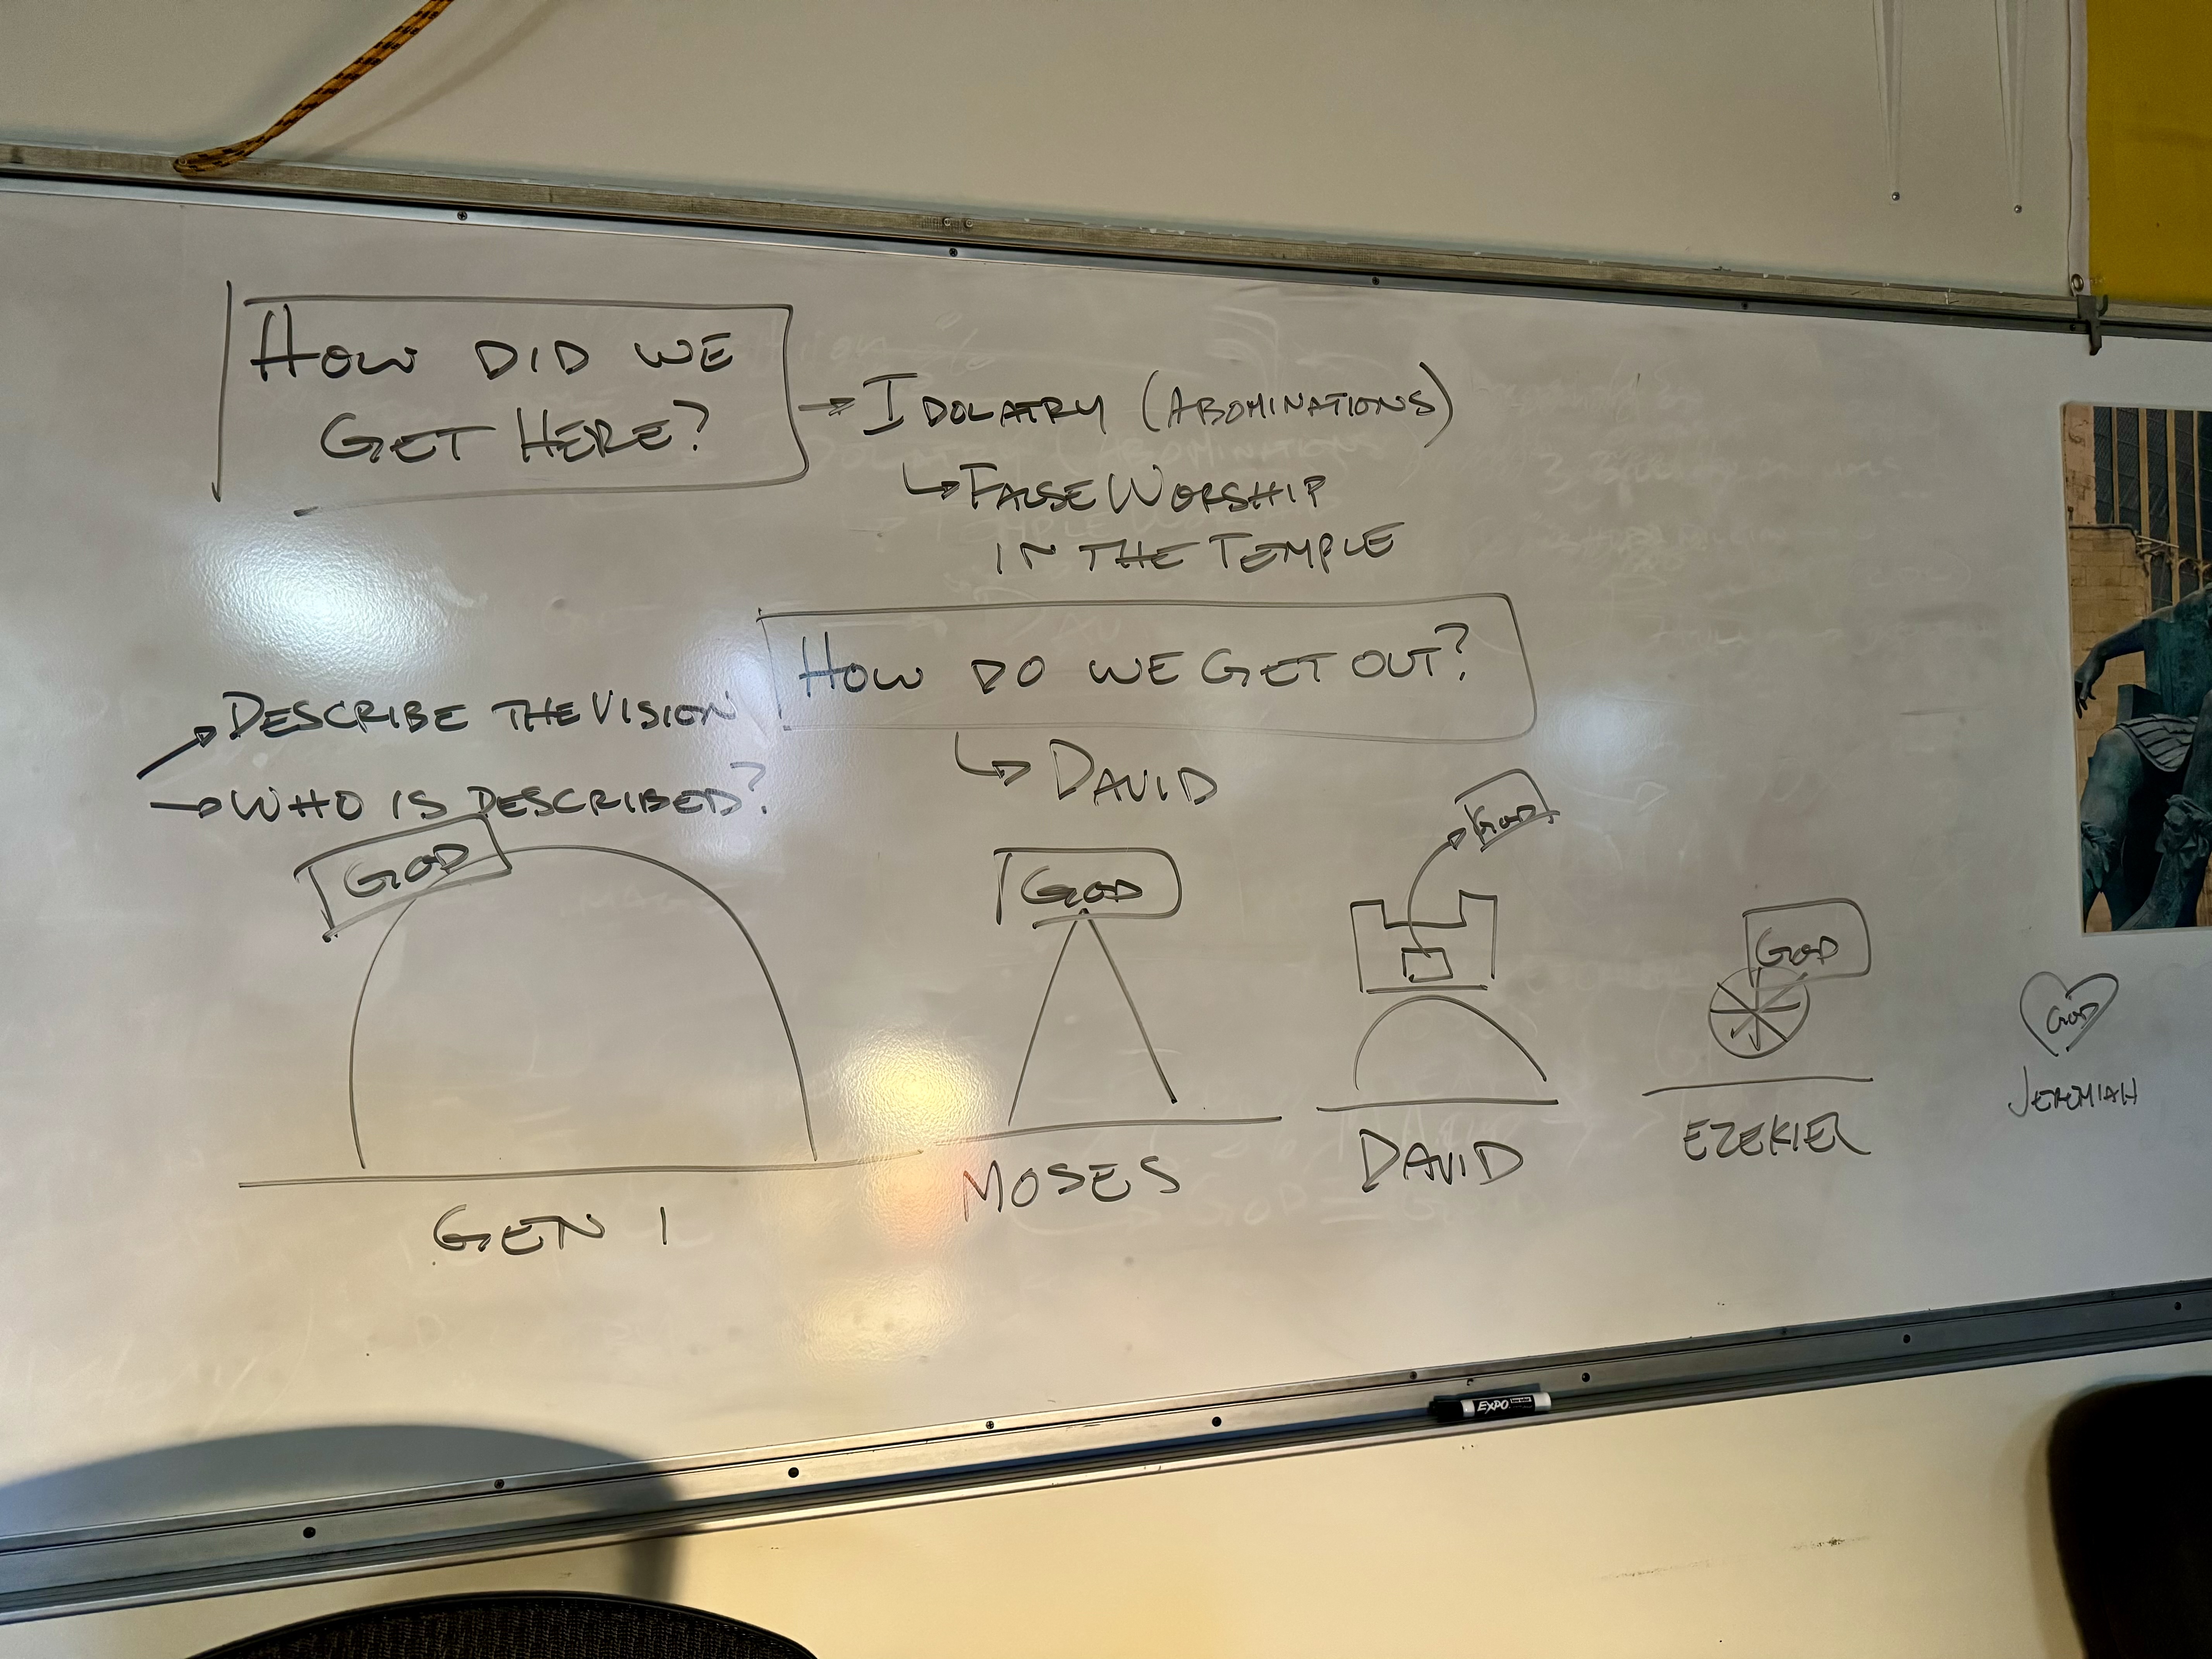 HOW DID WE
GET HERE?
→ IDOLATRY (ABOMINATIONS)
↳ FALSE WORSHIP
IN THE TEMPLE
HOW DO WE GET OUT?
↳ DAVID
→ DESCRIBE THE VISION
→ WHO IS DESCRIBED?
GOD
GEN 1
GOD
MOSES
GOD
DAVID
GOD
EZEKIEL
GOD
JEREMIAH
EXPO